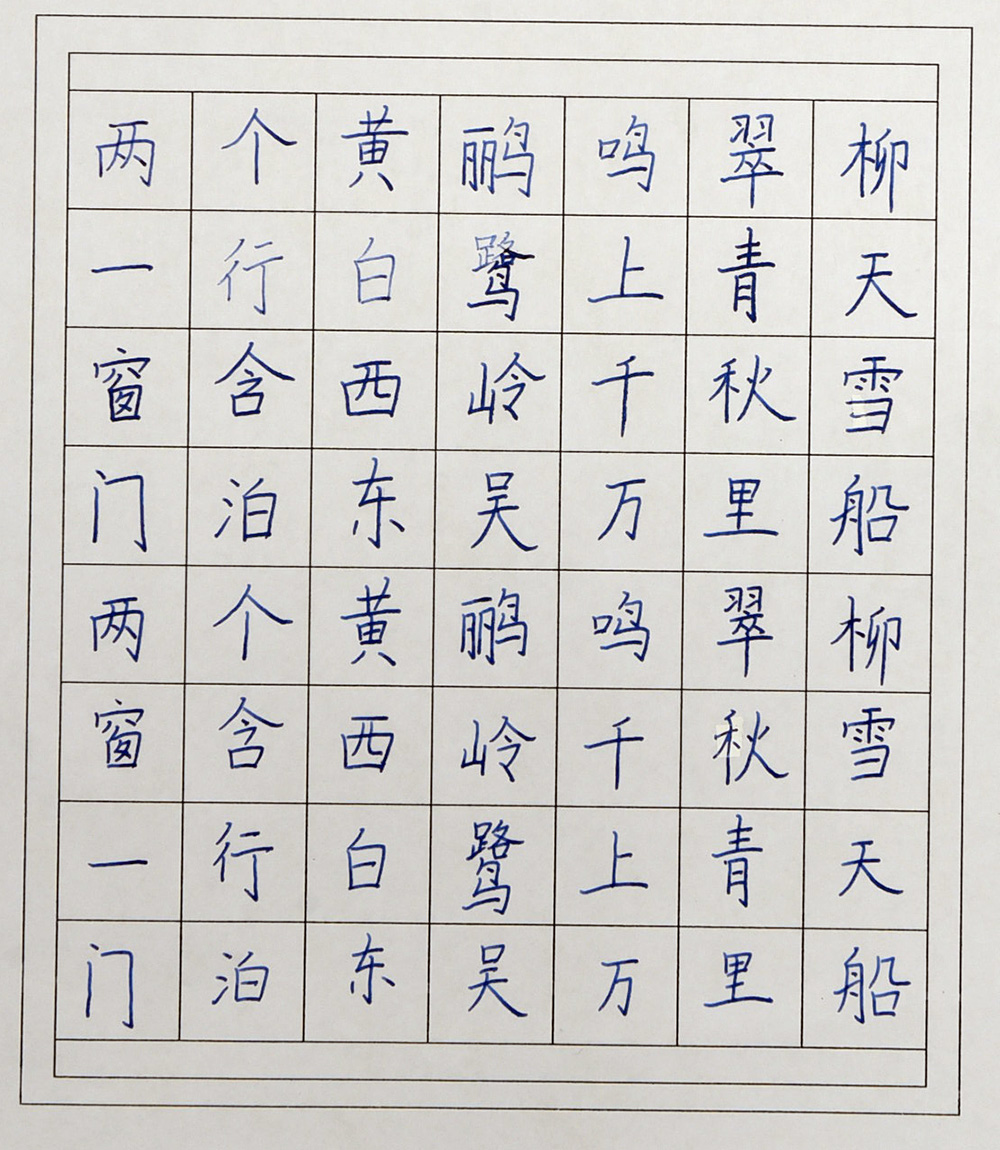 两个黄鹂鸣翠柳
一行白鹭上青天
窗含西岭千秋雪
门泊东吴万里船
两个黄鹂鸣翠柳
窗含西岭千秋雪
一行白鹭上青天
门泊东吴万里船